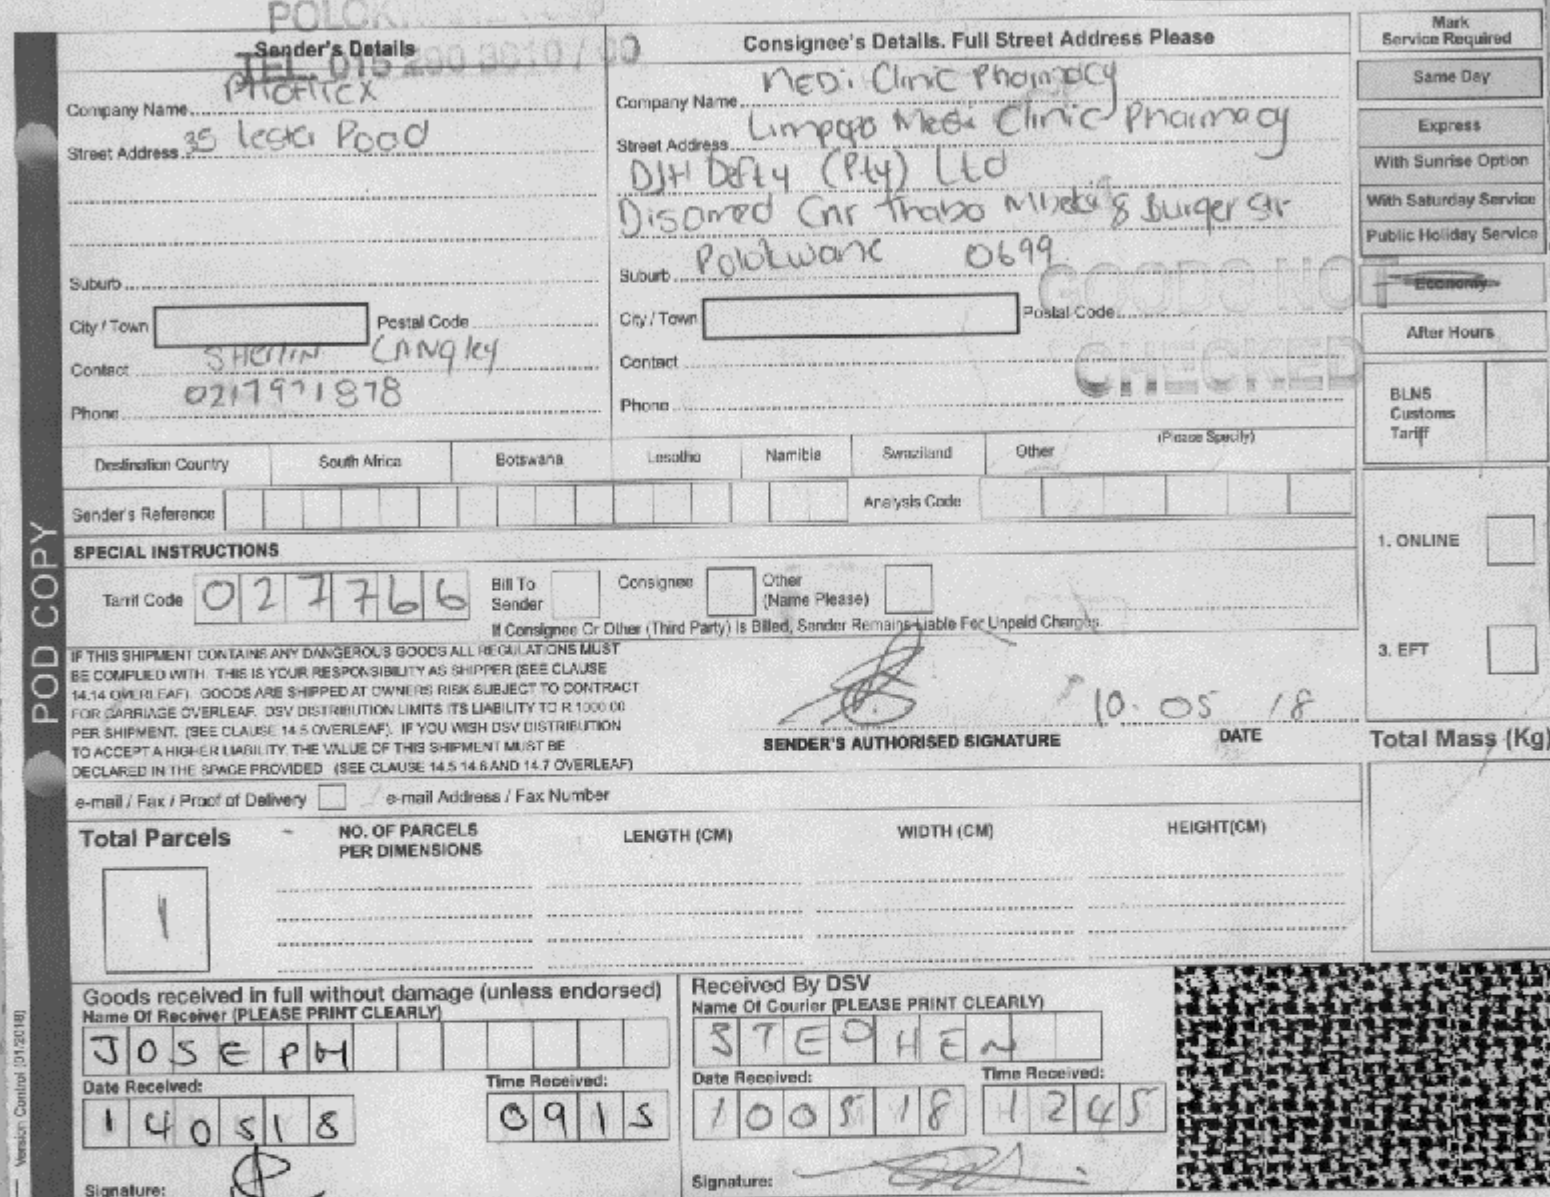 Sender's Details
TEL. 015 290 3010 / 00
Company Name
Street Address 35 Road
Suburb
City / Town
Postal Code
Contact
Phone 0217971878
Consignee's Details. Full Street Address Please
Company Name Medi Clinic Pharmacy
Street Address Limpopo Medi Clinic Pharmacy
DJH Defty (Pty) Ltd
Disamed Cnr Thabo Mbeki & Burger Str
Suburb Polokwane 0699
City / Town
Postal Code
Contact
Phone
GOODS NOT
CHECKED
Mark
Service Required
Same Day
Express
With Sunrise Option
With Saturday Service
Public Holiday Service
Economy
After Hours
BLNS
Customs
Tariff
Destination Country South Africa Botswana Lesotho Namibia Swaziland Other (Please Specify)
Sender's Reference
Analysis Code
SPECIAL INSTRUCTIONS
Tarrif Code 027766
Bill To
Sender
Consignee
Other
(Name Please)
If Consignee Or Other (Third Party) is Billed, Sender Remains Liable For Unpaid Charges.
1. ONLINE
3. EFT
IF THIS SHIPMENT CONTAINS ANY DANGEROUS GOODS ALL REGULATIONS MUST
BE COMPLIED WITH. THIS IS YOUR RESPONSIBILITY AS SHIPPER (SEE CLAUSE
14.14 OVERLEAF). GOODS ARE SHIPPED AT OWNERS RISK SUBJECT TO CONTRACT
FOR CARRIAGE OVERLEAF. DSV DISTRIBUTION LIMITS ITS LIABILITY TO R 1000.00
PER SHIPMENT. (SEE CLAUSE 14.5 OVERLEAF). IF YOU WISH DSV DISTRIBUTION
TO ACCEPT A HIGHER LIABILITY, THE VALUE OF THIS SHIPMENT MUST BE
DECLARED IN THE SPACE PROVIDED (SEE CLAUSE 14.5 14.6 AND 14.7 OVERLEAF)
SENDER'S AUTHORISED SIGNATURE
10. 05 18
DATE
Total Mass (Kg)
e-mail / Fax / Proof of Delivery
e-mail Address / Fax Number
Total Parcels
1
NO. OF PARCELS
PER DIMENSIONS
LENGTH (CM)
WIDTH (CM)
HEIGHT(CM)
Goods received in full without damage (unless endorsed)
Name Of Receiver (PLEASE PRINT CLEARLY)
JOSEPH
Date Received:
140518
Time Received:
0915
Signature:
Received By DSV
Name Of Courier (PLEASE PRINT CLEARLY)
STEPHEN
Date Received:
100518
Time Received:
1245
Signature:
POD COPY
Version Control (01/2018)